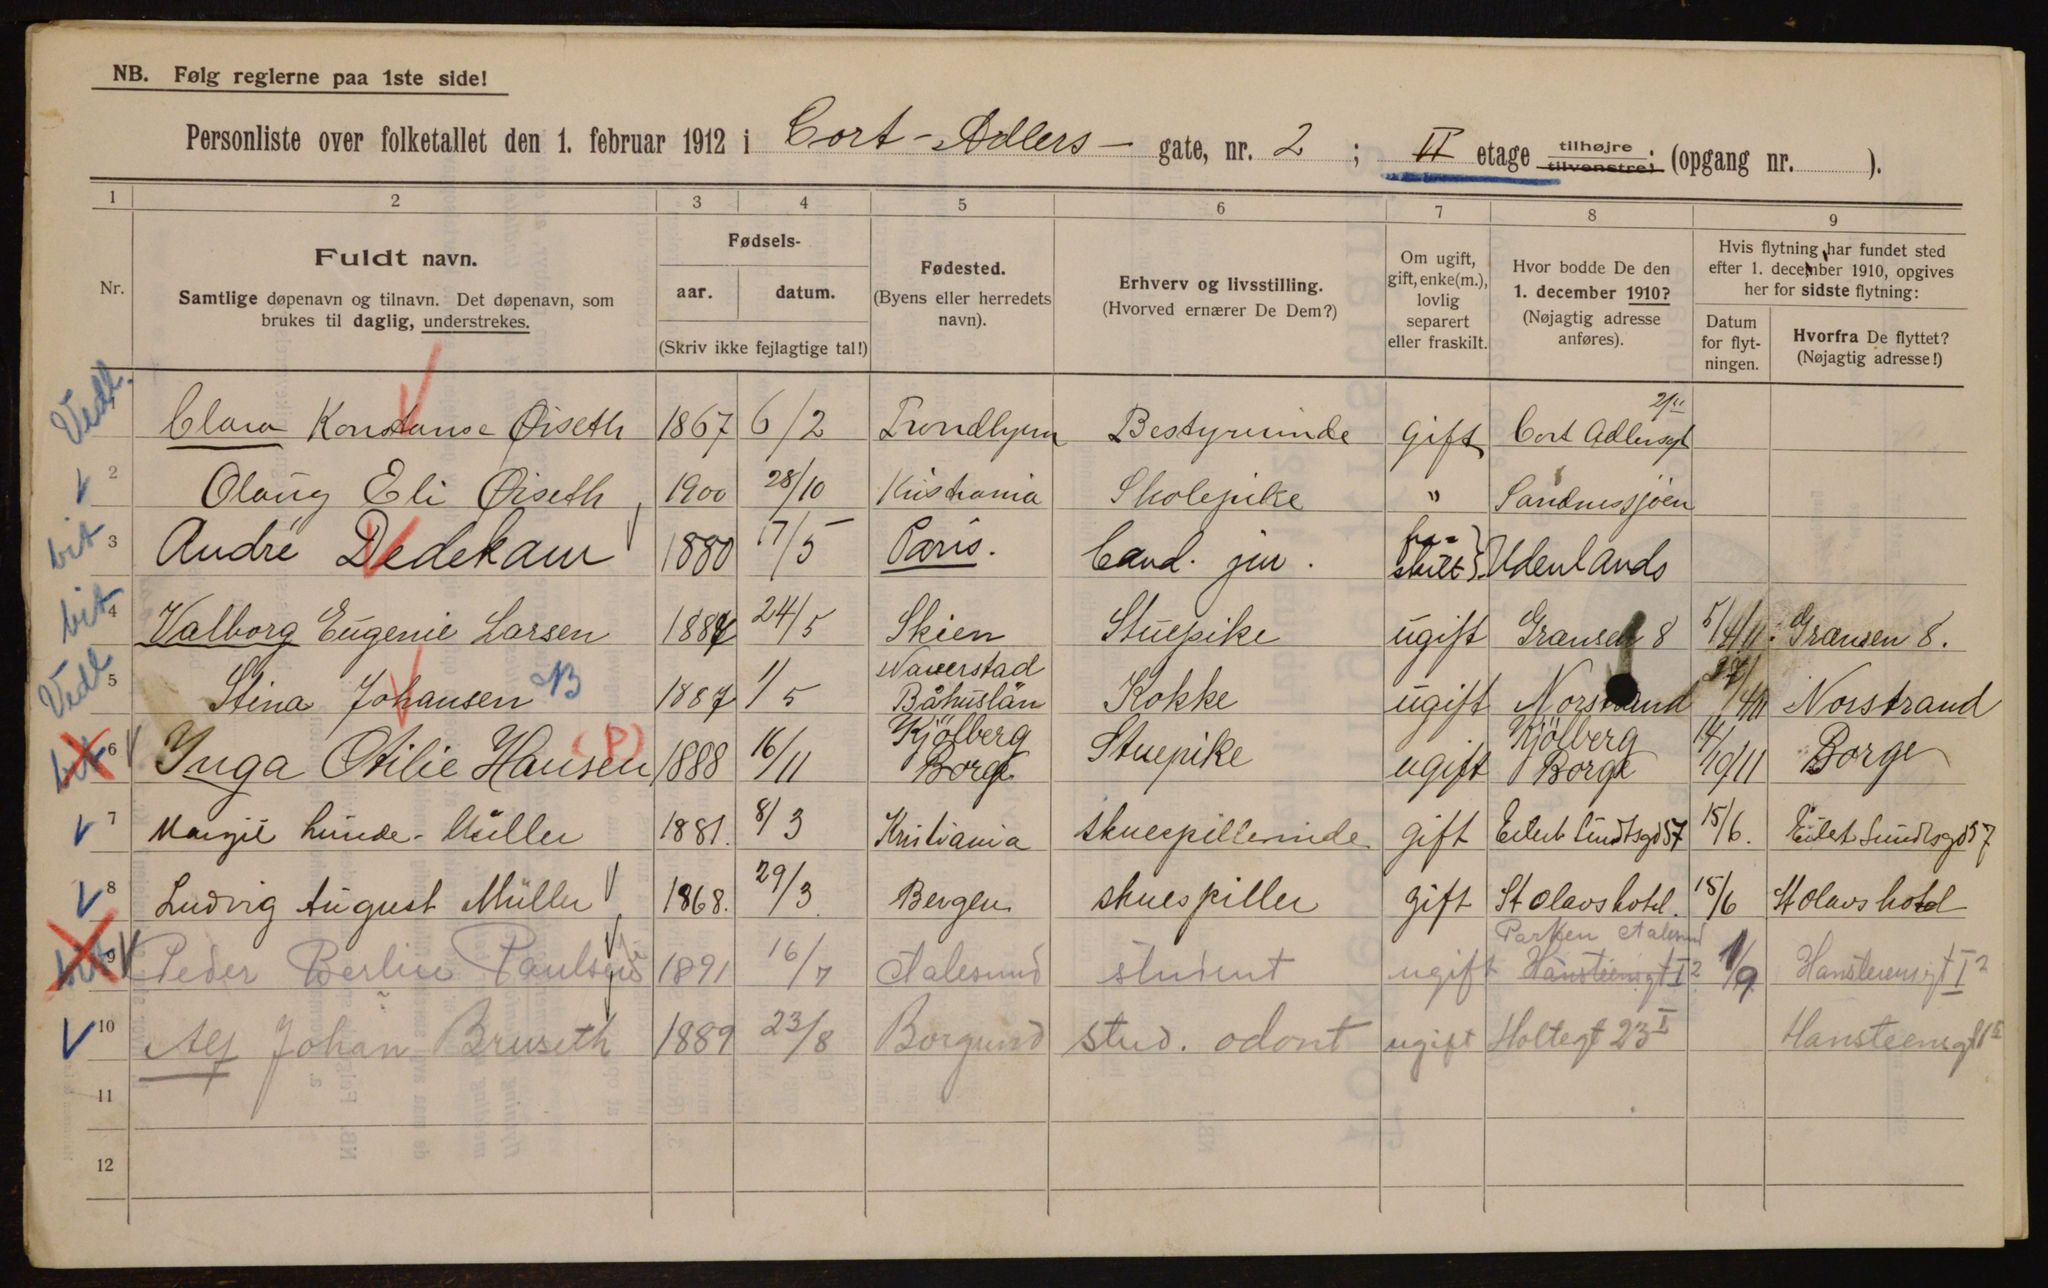 NB. Følg reglerne paa 1ste side!
Personliste over folketallet den 1. februar 1912 i Cort-Adlers- gate, nr. 2 ; II etage tilhøjre tilvenstre; (opgang nr. ).
1 2 3 4 5 6 7 8 9
Nr.
Fuldt navn.
Samtlige døpenavn og tilnavn. Det døpenavn, som
brukes til daglig, understrekes.
Fødsels-
aar. datum.
(Skriv ikke fejlagtige tal!)
Fødested.
(Byens eller herredets
navn).
Erhverv og livsstilling.
(Hvorved ernærer De Dem?)
Om ugift,
gift, enke(m.),
lovlig
separert
eller fraskilt.
Hvor bodde De den
1. december 1910?
(Nøjagtig adresse
anføres).
Hvis flytning har fundet sted
efter 1. december 1910, opgives
her for sidste flytning:
Datum
for flyt-
ningen.
Hvorfra De flyttet?
(Nøjagtig adresse!)
Vedl. Clara Konstanse Øiseth 1867 6/2 Trondhjem Bestyrerinde gift Cort Adlersgt 2/II
2 Olaug Eli Øiseth 1900 28/10 Kristiania Skolepike " Sandnessjøen
bit 3 André Dedekam 1880 17/5 Paris. Cand. jur. fra-skilt Udenlands
bit 4 Valborg Eugenie Larsen 1887 24/5 Skien Stuepike ugift Grænsen 8 5/4/11. Grænsen 8.
Vedl 5 Stina Johansen B 1887 1/5 Naverstad Båhuslän Kokke ugift Norstrand 27/4/11 Norstrand
bit 6 Inga Otilie Hansen (P) 1888 16/11 Kjölberg Borge Stuepike ugift Kjölberg Borge 14/10/11 Borge
7 Margit Lunde-Müller 1881. 8/3 Kristiania skuespillerinde gift Eilert Sundtsgd 57 15/6. Eilert Sundtsgd 57
8 Ludvig August Müller 1868. 29/3 Bergen skuespiller gift St Olavs hotel. 15/6 St Olavs hotel
bit 9 Peder Berlin Paulsen 1891 16/7 Aalesund student ugift Parken Aalesund Hansteensgt I 2 1/9 Hansteensgt I 2
10 Alf Johan Bruseth 1889 23/8 Borgund stud. odont ugift Holtegt 23 I Hansteensgt
11
12